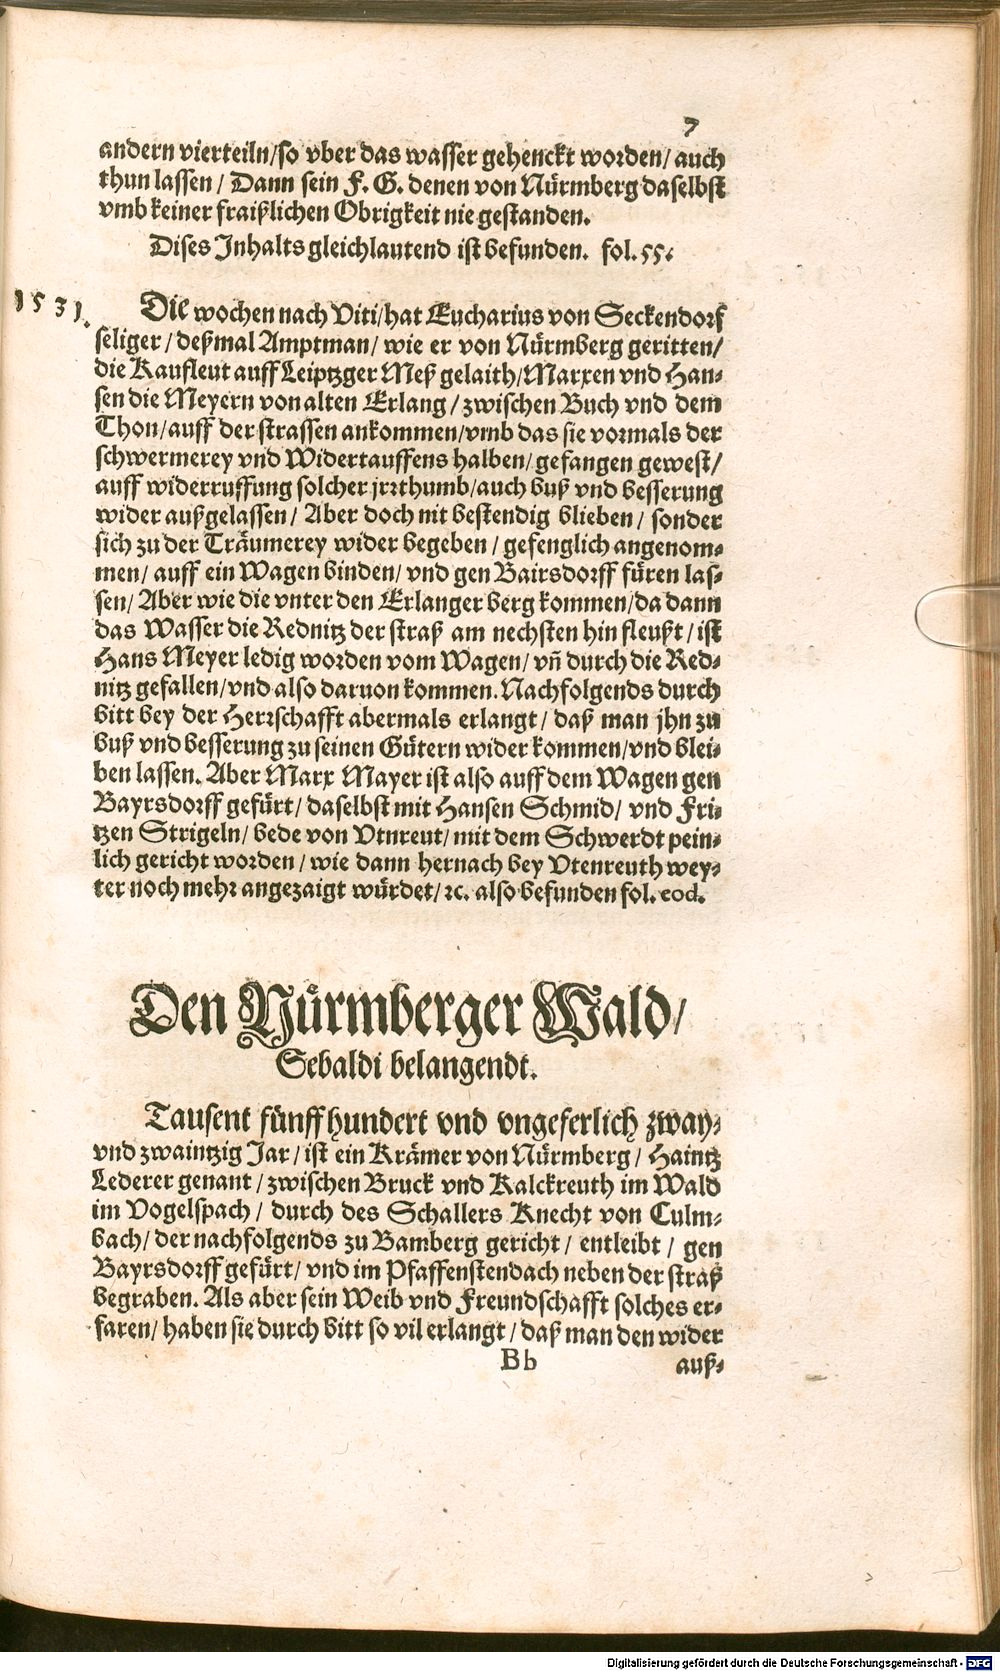 7
andern vierteiln/so vber das wasser gehenckt worden/ auch
thun lassen / Dann sein F. G. denen von Nürmberg daselbst
vmb keiner fraißlichen Obrigkeit nie gestanden.
Dises Inhalts gleichlautend ist befunden. fol. 55.
1531.
Die wochen nach Viti/hat Eucharius von Seckendorf
seliger / deßmal Amptman/ wie er von Nürmberg geritten/
die Kaufleut auff Leiptzger Meß gelaith/Marxen vnd Han-
sen die Meyern von alten Erlang / zwischen Buch vnd dem
Thon/auff der strassen ankommen/vmb das sie vormals der
schwermerey vnd Widertauffens halben/ gefangen gewest/
auff widerruffung solcher jrrthumb/auch buß vnd besserung
wider außgelassen / Aber doch nit bestendig blieben / sonder
sich zu der Träumerey wider begeben / gefenglich angenom-
men/ auff ein Wagen binden/ vnd gen Bairsdorff füren las-
sen/ Aber wie die vnter den Erlanger berg kommen/da dann
das Wasser die Rednitz der straß am nechsten hin fleußt / ist
Hans Meyer ledig worden vom Wagen/ vn̄ durch die Red-
nitz gefallen/vnd also daruon kommen. Nachfolgends durch
bitt bey der Herrschafft abermals erlangt / daß man jhn zu
buß vnd besserung zu seinen Gütern wider kommen/vnd blei-
ben lassen. Aber Marx Mayer ist also auff dem Wagen gen
Bayrsdorff gefürt/ daselbst mit Hansen Schmid/ vnd Fri-
tzen Strigeln/ bede von Vtnreut/ mit dem Schwerdt pein-
lich gericht worden / wie dann hernach bey Vtenreuth wey-
ter noch mehr angezaigt würdet/ ꝛc. also befunden fol. eod.
Den Nürmberger Wald/
Sebaldi belangendt.
Tausent fünffhundert vnd vngeferlich zway-
vnd zwaintzig Jar / ist ein Krämer von Nürmberg/ Haintz
Lederer genant / zwischen Bruck vnd Kalckreuth im Wald
im Vogelspach / durch des Schallers Knecht von Culm-
bach/ der nachfolgends zu Bamberg gericht / entleibt / gen
Bayrsdorff gefürt/ vnd im Pfaffenstendach neben der straß
begraben. Als aber sein Weib vnd Freundschafft solches er-
faren/ haben sie durch bitt so vil erlangt / daß man den wider
Bb
auß-
Digitalisierung gefördert durch die Deutsche Forschungsgemeinschaft - DFG